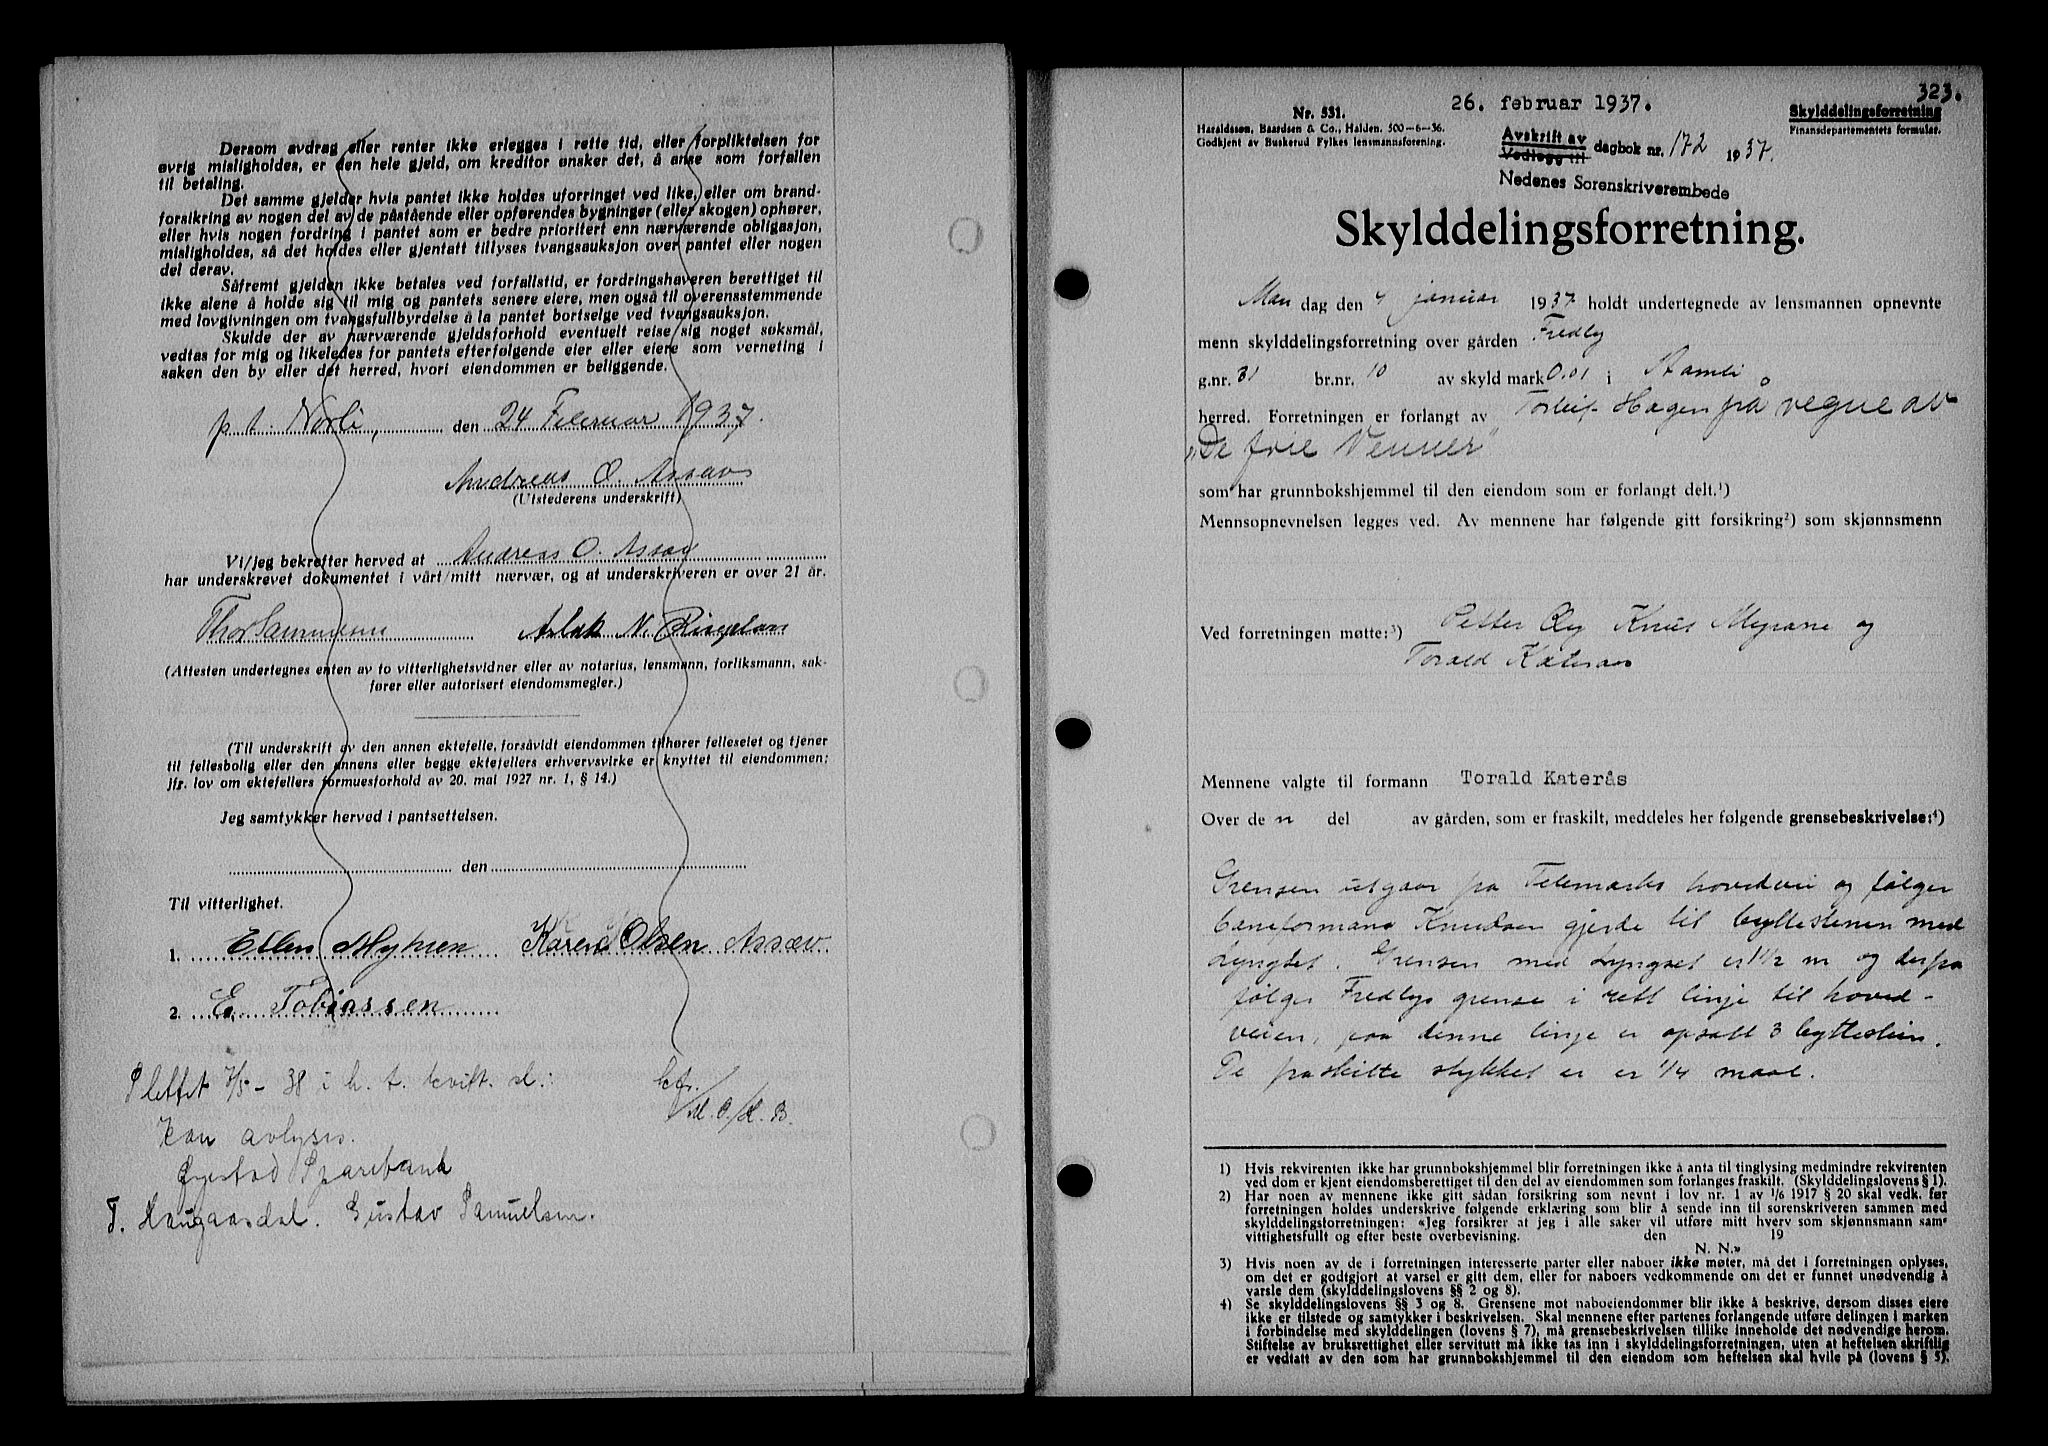 Dersom avdrag eller renter ikke erlegges i rette tid, eller forpliktelsen for
øvrig misligholdes, er den hele gjeld, om kreditor ønsker det, å anse som forfallen
til betaling.
Det samme gjelder hvis pantet ikke holdes uforringet ved like, eller om brand-
forsikring av nogen del av de påstående eller opførendes bygninger (eller skogen) ophører,
eller hvis nogen fordring i pantet som er bedre prioritert enn nærværende obligasjon,
misligholdes, så det holdes eller gjentatt tillyses tvangsauksjon over pantet eller nogen
del derav.
Såfremt gjelden ikke betales ved forfallstid, er fordringshaveren berettiget til
ikke alene å holde sig til mig og pantets senere eiere, men også til overensstemmende
med lovgivningen om tvangsfullbyrdelse å la pantet bortselge ved tvangsauksjon.
Skulde der av nærværende gjeldsforhold eventuelt reise sig noget søksmål,
vedtas for mig og likeledes for pantets efterfølgende eier eller eiere som verneting i
saken den by eller det herred, hvori eiendommen er beliggende.
p. t. Norli, den 24 Februar 1937.
Andreas O. Assav
(Utstederens underskrift)
Vi/jeg bekrefter herved at Andreas O. Assav
har underskrevet dokumentet i vårt/mitt nærvær, og at underskriveren er over 21 år.
Thor Aslak N.
(Attesten undertegnes enten av to vitterlighetsvidner eller av notarius, lensmann, forliksmann, sak-
fører eller autorisert eiendomsmegler.)
(Til underskrift av den annen ektefelle, forsåvidt eiendommen tilhører felleseiet og tjener
til fellesbolig eller den annens eller begge ektefellers erhvervsvirke er knyttet til eiendommen;
jfr. lov om ektefellers formuesforhold av 20. mai 1927 nr. 1, § 14.)
Jeg samtykker herved i pantsettelsen.
den
Til vitterlighet.
1. Ellen Myhren Karen Olsen Assev.
2. E. Tobiassen
Slettet 7/5-38 i h. t. kvitt. sl.:
Kan avlyses.
Øyestad Sparebank
T. Haugaasdal. Gustav Samuelsen.
323.
26. februar 1937.
Nr. 531.
Haraldssøn, Baardsen & Co., Halden. 500-6-36.
Godkjent av Buskerud Fylkes lensmannsforening.
Skylddelingsforretning
Finansdepartementets formular.
Avskrift av
Vedlegg til dagbok nr. 172 1937.
Nedenes Sorenskriverembede
Skylddelingsforretning.
Man dag den 4 januar 1937 holdt undertegnede av lensmannen opnevnte
menn skylddelingsforretning over gården Fredly
g.nr. 31 br.nr. 10 av skyld mark 0.01 i Aamli
herred. Forretningen er forlangt av Torleif Hagen på vegne av
"De frie Venner"
som har grunnbokshjemmel til den eiendom som er forlangt delt.1)
Mennsopnevnelsen legges ved. Av mennene har følgende gitt forsikring2) som skjønnsmenn
Ved forretningen møtte:3) Petter Knut Myrane og
Torald Kateraas
Mennene valgte til formann Torald Katerås
Over den del av gården, som er fraskilt, meddeles her følgende grensebeskrivelse:4)
Grensen utgaar fra Telemarks hovedvei og følger
baneformand Knudsen gjerde til byttestenen med
Lyngtet. Grensen med Lyngset er 1 1/2 m og derfra
følger Fredlys grense i rett linje til hoved-
veien, paa denne linje er opsatt 3 byttestein.
De fraskilte stykket er er 1/4 maal.
1) Hvis rekvirenten ikke har grunnbokshjemmel blir forretningen ikke å anta til tinglysing medmindre rekvirenten
ved dom er kjent eiendomsberettiget til den del av eiendommen som forlanges fraskilt. (Skylddelingslovens § 1).
2) Har noen av mennene ikke gitt sådan forsikring som nevnt i lov nr. 1 av 1/6 1917 § 20 skal vedk. før
forretningen holdes underskrive følgende erklæring som blir å sende inn til sorenskriveren sammen med
skylddelingsforretningen: «Jeg forsikrer at jeg i alle saker vil utføre mitt hverv som skjønnsmann sam-
vittighetsfullt og efter beste overbevisning. den 19
N. N.»
3) Hvis noen av de i forretningen interesserte parter eller naboer ikke møter, må det i forretningen oplyses,
om det er godtgjort at varsel er gitt dem, eller for naboers vedkommende om det er funnet unødvendig å
varsle dem (skylddelingslovens §§ 2 og 8).
4) Se skylddelingslovens §§ 3 og 8. Grensene mot naboeiendommer blir ikke å beskrive, dersom disses eiere
ikke er tilstede og samtykker i beskrivelsen. Skal mennene efter partenes forlangende utføre delingen i marken
i forbindelse med skylddelingen (lovens § 7), må grensebeskrivelsen tillike inneholde det nødvendige herom.
Stiftelse av bruksrettighet eller servitutt må ikke tas inn i skylddelingsforretningen, uten at heftelsen skriftlig
er vedtatt av den som har grunnbokshjemmel til den eiendom som heftelsen skal hvile på (lovens § 5).